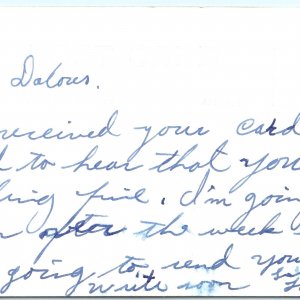 Dolores.
received your card
to hear that you
fine. I'm going
after the week
going to send you
write soon